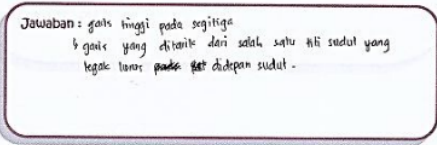 Jawaban : garis tinggi pada segitiga
↳ garis yang ditarik dari salah satu titi sudut yang
tegak lurus didepan sudut.